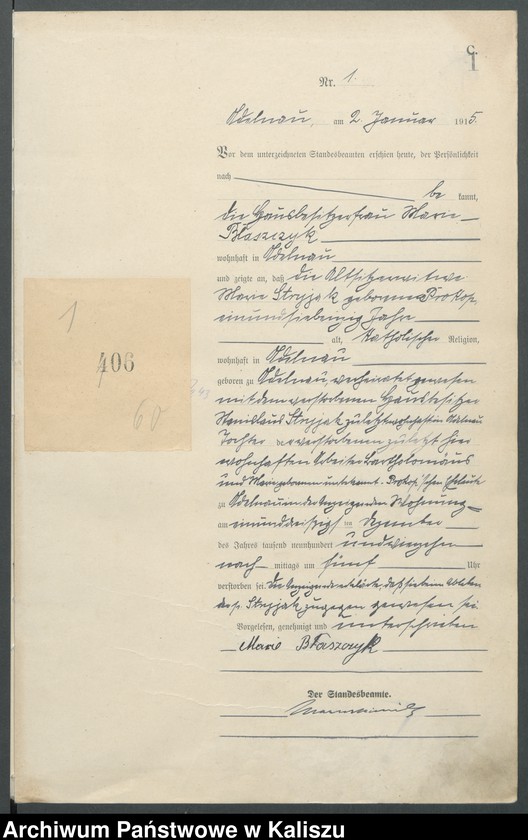 C.
1
Nr. 1.
Adelnau, am 2. Januar 1915.
Vor dem unterzeichneten Standesbeamten erschien heute, der Persönlichkeit
nach
be kannt,
die Hausbesitzerfrau Marie
Błaszczyk
wohnhaft in Adelnau
und zeigte an, daß die Altsitzerwitwe
Marie Stryjak geborene Prokop,
einundsiebenzig Jahre
alt, katholischer Religion,
wohnhaft in Adelnau
geboren zu Adelnau, verheiratet gewesen
mit dem verstorbenen Hausbesitzer
Stanislaus Stryjak zuletzt wohnhaft in Adelnau
Tochter der verstorbenen zuletzt hier
wohnhaften Arbeiter Bartholomäus
und Marie geborenen unbekannt - Prokop'schen Eheleute
zu Adelnau in der Anzeigenden Wohnung
am einunddreißigsten Dezember
des Jahres tausend neunhundert und vierzehn
nach mittags um fünf Uhr
verstorben sei. Die Anzeigende erklärte, daß sie beim Ableben
der p. Stryjak zugegen gewesen sei
Vorgelesen, genehmigt und unterschrieben
Marie Błaszczyk
Der Standesbeamte.
1
406
60
Archiwum Państwowe w Kaliszu